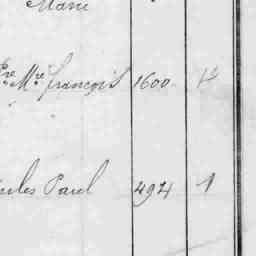 Marie
Mre François 1600 1
ules Paul 494 1